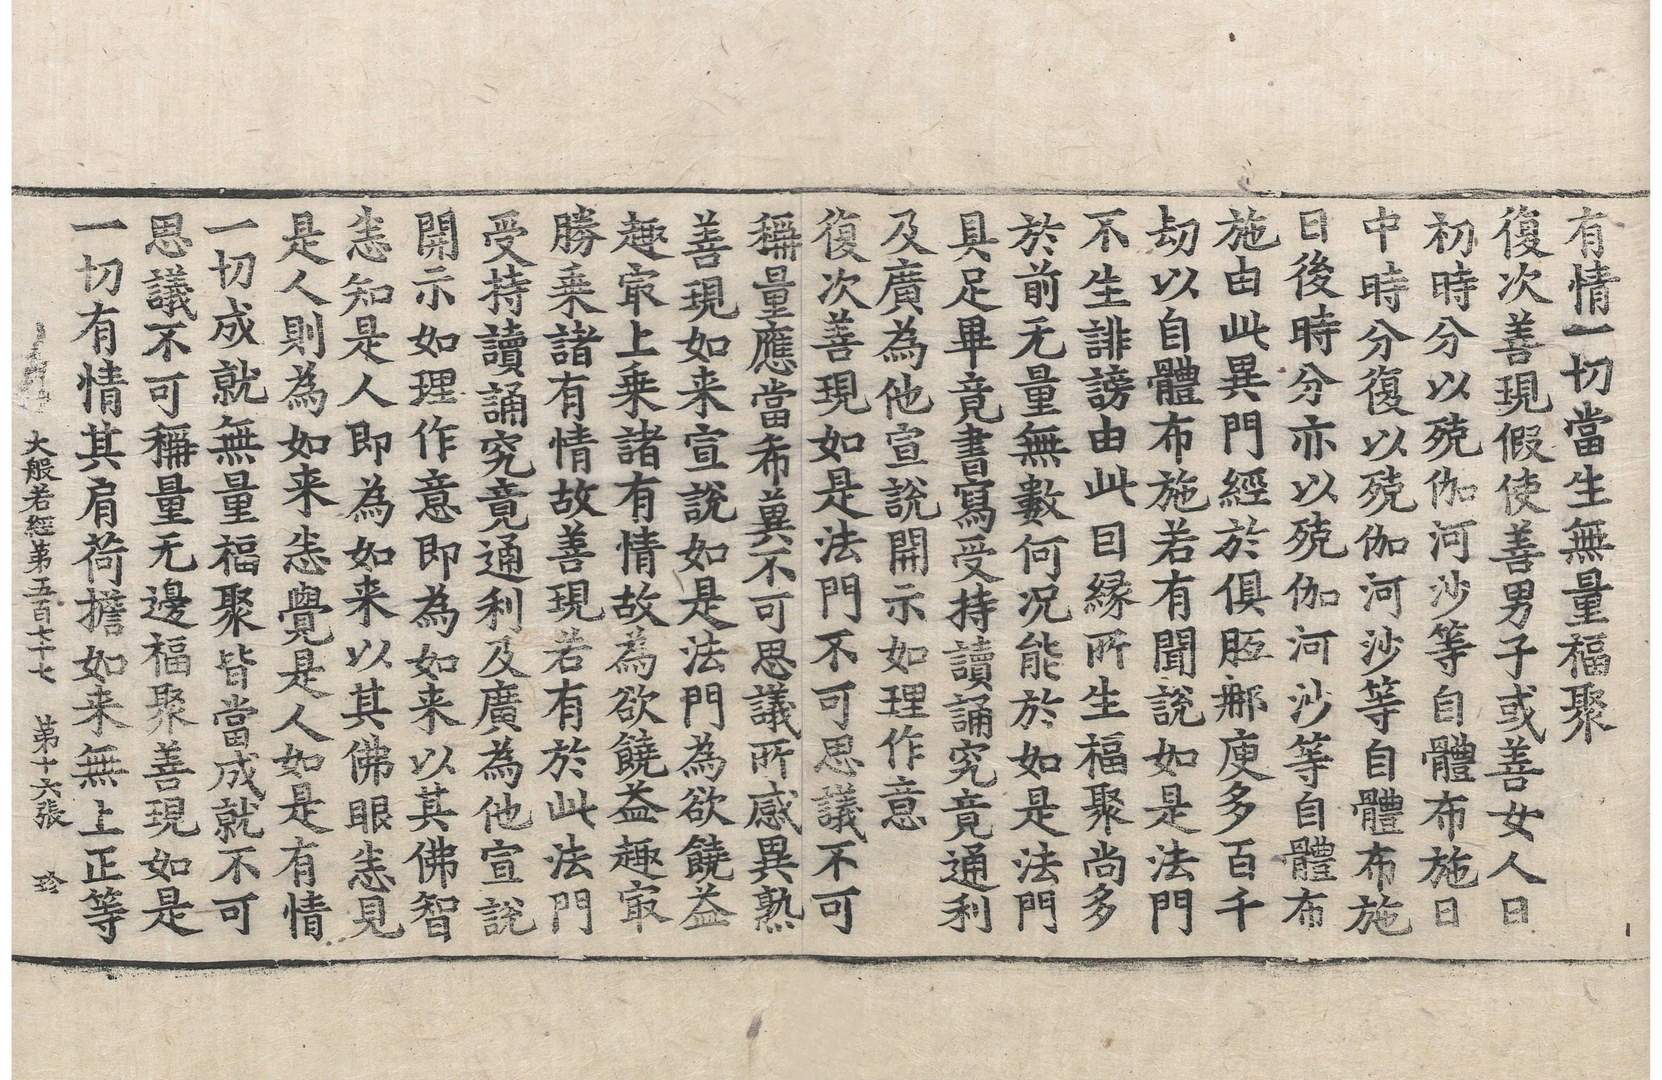 有情一切當生無量福聚
復次善現假使善男子或善女人日
初時分以殑伽河沙等自體布施日
中時分復以殑伽河沙等自體布施
日後時分亦以殑伽河沙等自體布
施由此異門經於俱胝郍庾多百千
劫以自體布施若有聞說如是法門
不生誹謗由此因緣所生福聚尚多
於前无量無數何况能於如是法門
具足畢竟書寫受持讀誦究竟通利
及廣為他宣說開示如理作意
復次善現如是法門不可思議不可
稱量應當希兾不可思議所感異熟
善現如来宣說如是法門為欲饒益
趣㝡上乗諸有情故為欲饒益趣㝡
勝乗諸有情故善現若有於此法門
受持讀誦究竟通利及廣為他宣說
開示如理作意即為如来以其佛智
悉知是人即為如来以其佛眼悉見
是人則為如来悉覺是人如是有情
一切成就無量福聚皆當成就不可
思議不可稱量无邊福聚善現如是
一切有情其肩荷擔如来無上正等
大般若經第五百七十七 第十六張 珍